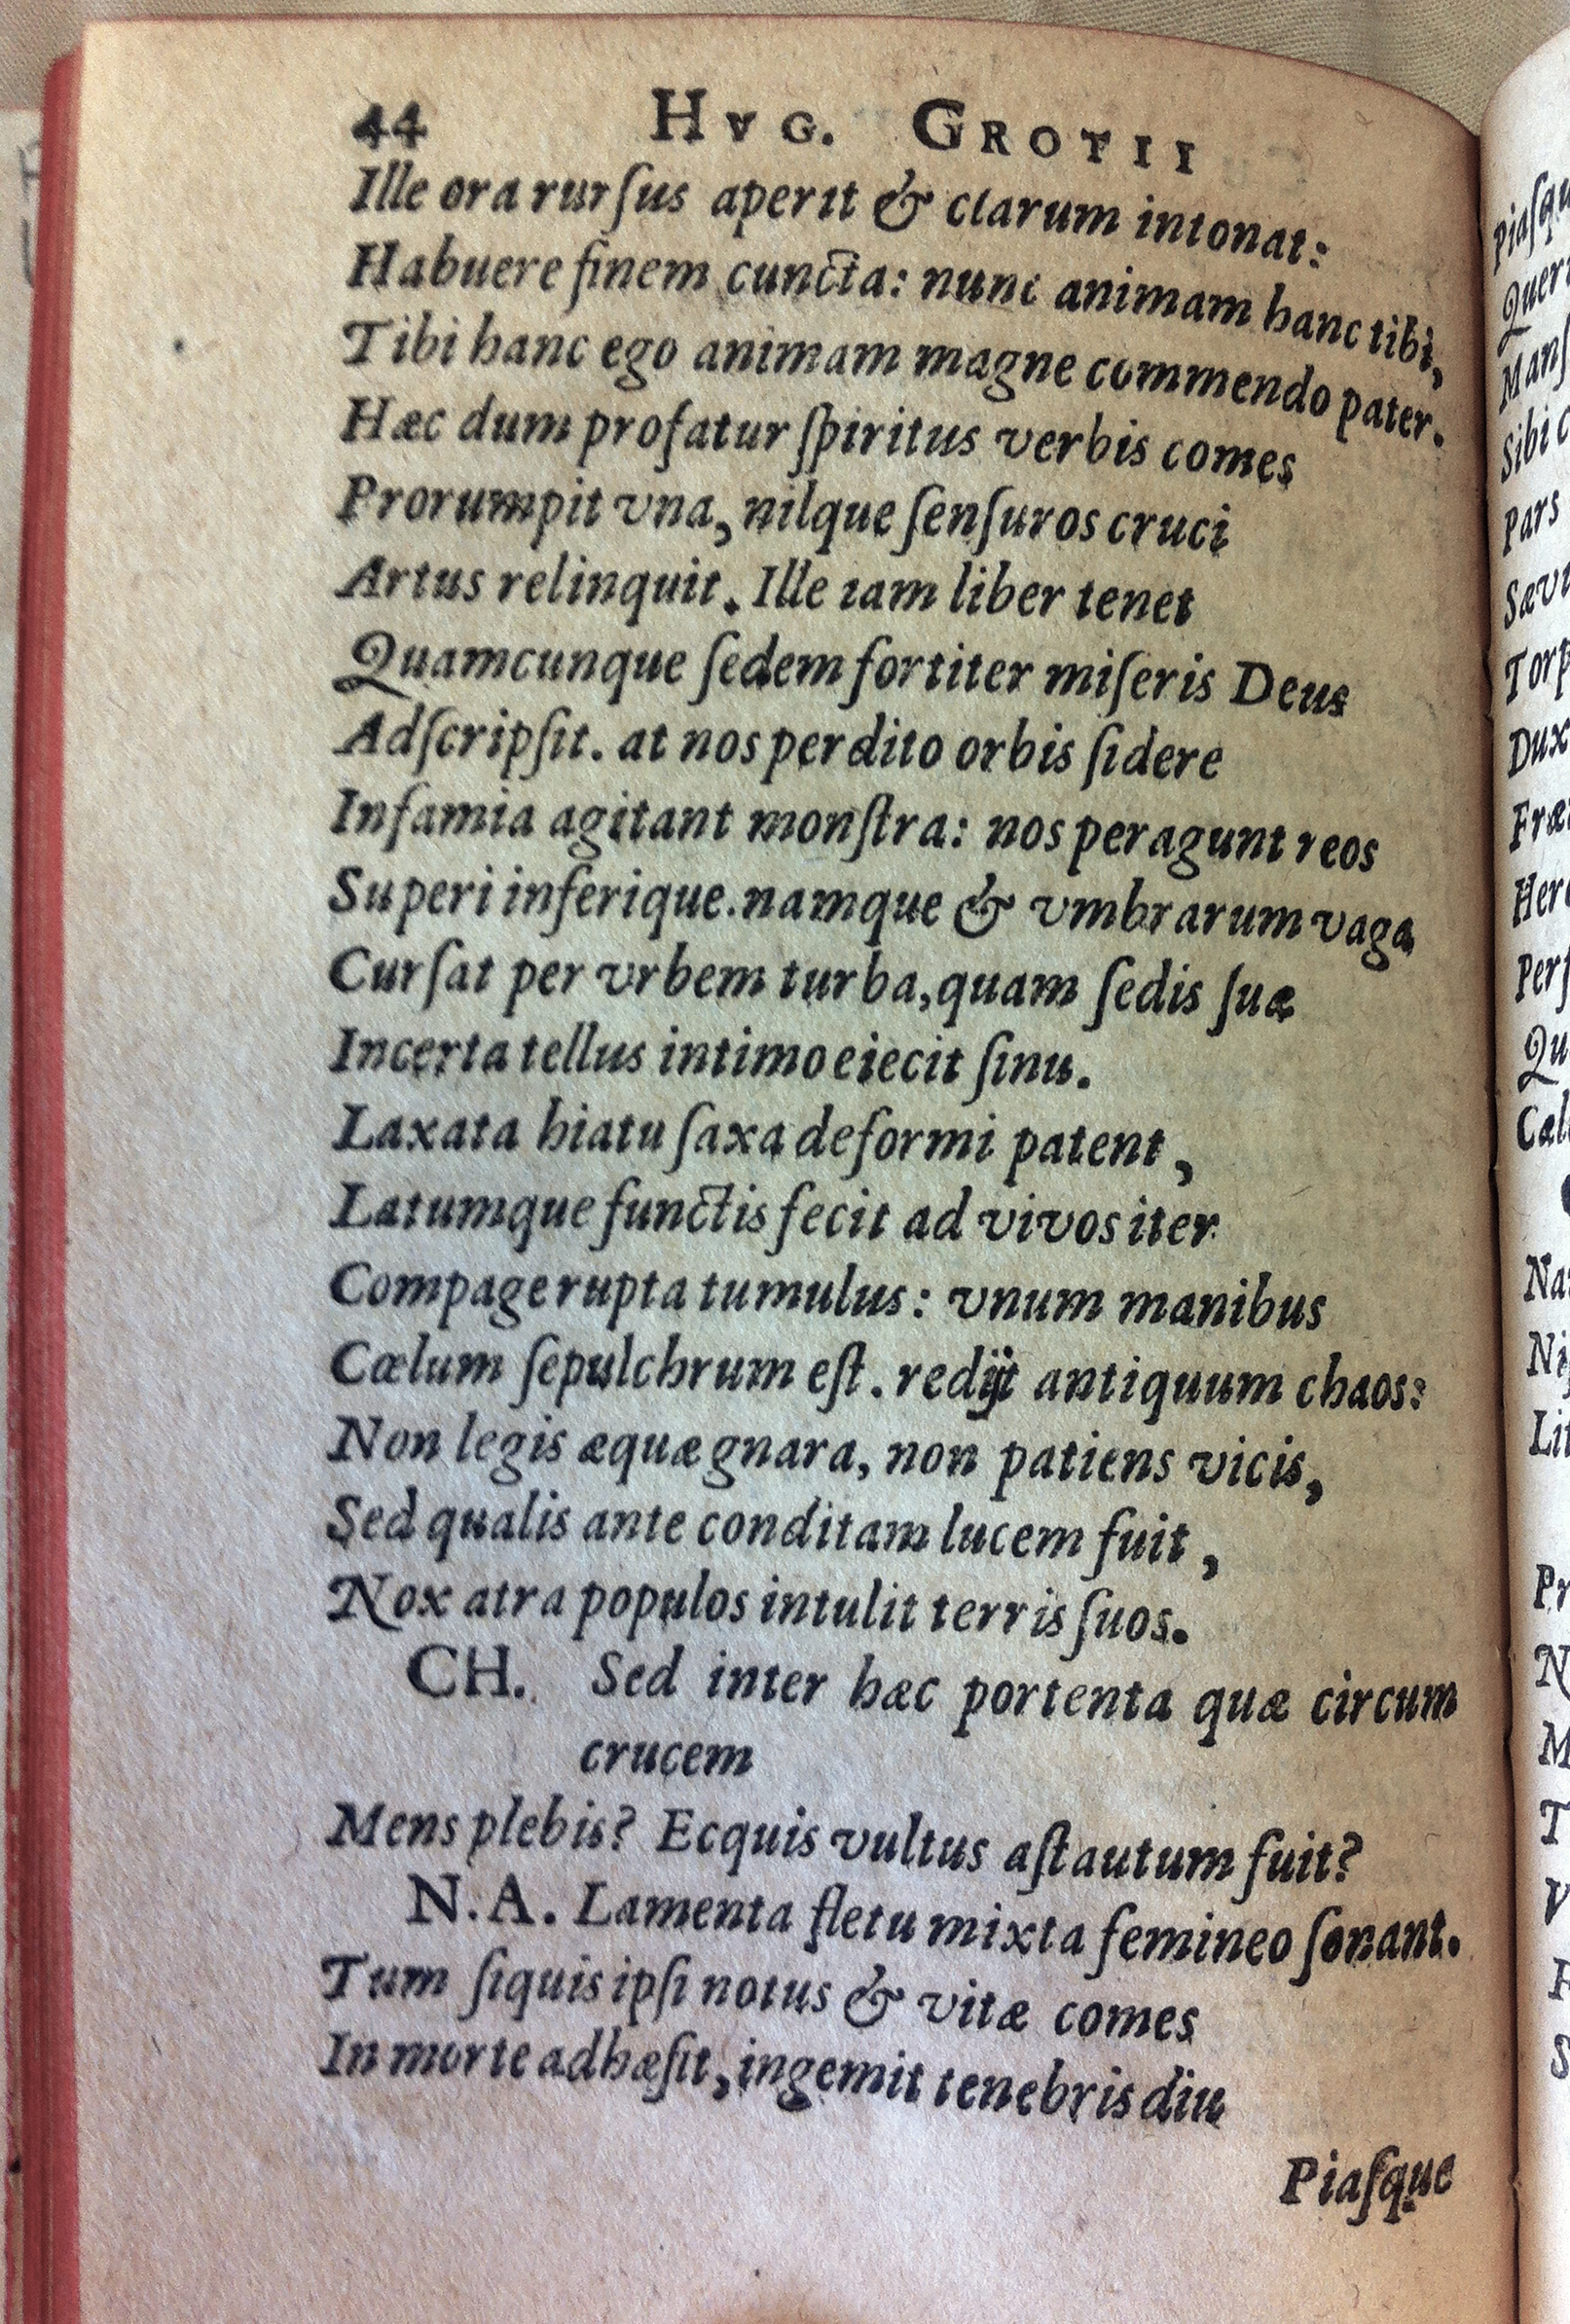 44 HVG. GROTII
Ille ora rursus aperit & clarum intonat:
Habuere finem cuncta: nunc animam hanc tibi,
Tibi hanc ego animam magne commendo pater.
Hæc dum profatur spiritus verbis comes
Prorumpit vna, nilque sensuros cruci
Artus relinquit. Ille iam liber tenet
Quamcunque sedem fortiter miseris Deus
Adscripsit. at nos perdito orbis sidere
Infamia agitant monstra: nos peragunt reos
Superi inferique. namque & vmbrarum vaga
Cursat per vrbem turba, quam sedis suæ
Incerta tellus intimo eiecit sinu.
Laxata hiatu saxa deformi patent,
Latumque functis fecit ad vivos iter
Compage rupta tumulus: vnum manibus
Cælum sepulchrum est. redijt antiquum chaos:
Non legis æquæ gnara, non patiens vicis,
Sed qualis ante conditam lucem fuit,
Nox atra populos intulit terris suos.
CH. Sed inter hæc portenta quæ circum
crucem
Mens plebis? Ecquis vultus astautum fuit?
N.A. Lamenta fletu mixta femineo sonant.
Tum siquis ipsi notus & vitæ comes
In morte adhæsit, ingemit tenebris diu
Piasque
Piasqu
Quer
Mans
Sibi c
Pars
Torp
Dux
Pers
Qu
Cæl
Ni
Lit
Pr
N
M
T
V